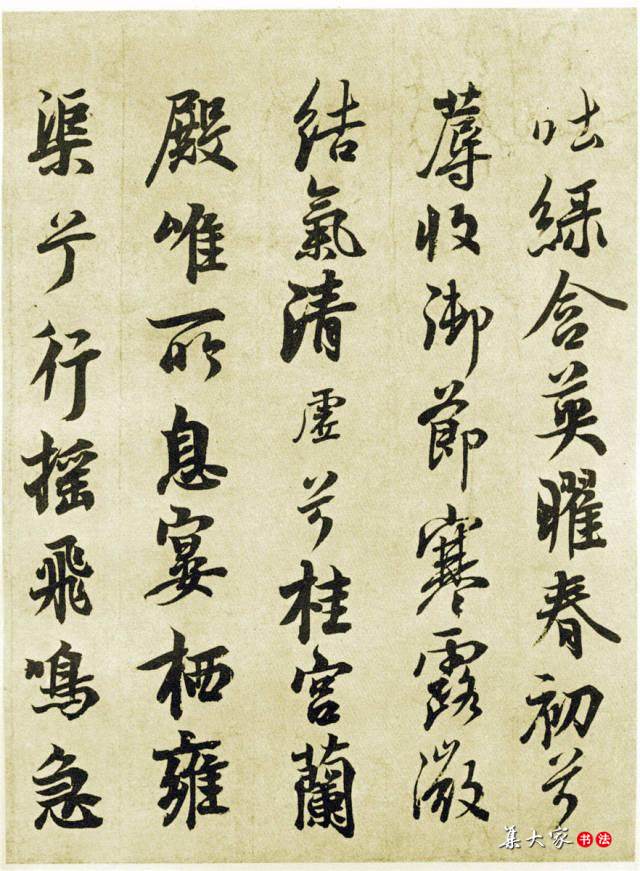 吐綠含英曜春初兮
蓐收御節寒露微
結氣清虛兮桂宮蘭
殿唯所息宴栖雍
渠兮行搖飛鳴急
集大家书法